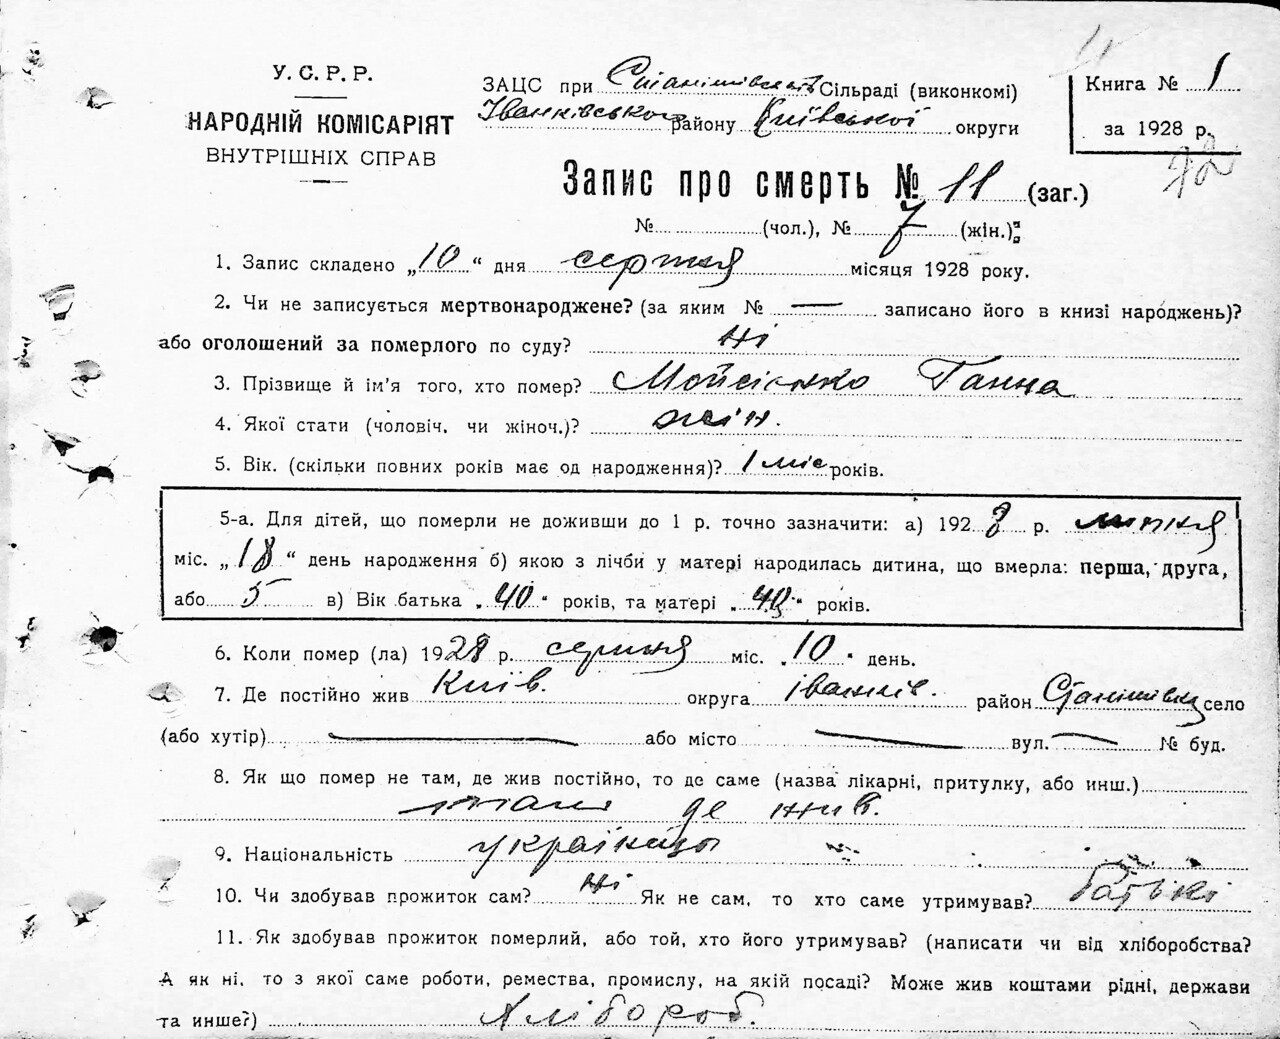 У. С. Р. Р.
НАРОДНІЙ КОМІСАРІЯТ
ВНУТРІШНІХ СПРАВ
ЗАЦС при Сільраді (виконкомі)
Іванківського району Київської округи
Книга № 1
за 1928 р.
72
Запис про смерть № 11 (заг.)
№ (чол.), № 7 (жін.)
1. Запис складено „10“ дня серпня місяця 1928 року.
2. Чи не записується мертвонароджене? (за яким № — записано його в книзі народжень)?
або оголошений за померлого по суду? Ні
3. Прізвище й ім'я того, хто помер? Мойсієнко Ганна
4. Якої стати (чоловіч. чи жіноч.)? жін.
5. Вік. (скільки повних років має од народження)? 1 міс років.
5-а. Для дітей, що померли не доживши до 1 р. точно зазначити: а) 1928 р. липня
міс. „18“ день народження б) якою з лічби у матері народилась дитина, що вмерла: перша, друга,
або 5 в) Вік батька „40“ років, та матері „40“ років.
6. Коли помер (ла) 1928 р. серпня міс. „10“ день.
7. Де постійно жив Київ. округа Іванків. район Станішівка село
(або хутір) — або місто — вул. — № буд.
8. Як що помер не там, де жив постійно, то де саме (назва лікарні, притулку, або инш.)
там де жив.
9. Національність українці
10. Чи здобував прожиток сам? Ні Як не сам, то хто саме утримував? батькі
11. Як здобував прожиток померлий, або той, хто його утримував? (написати чи від хліборобства?
А як ні, то з якої саме роботи, ремества, промислу, на якій посаді? Може жив коштами рідні, держави
та инше?) Хлібороб.